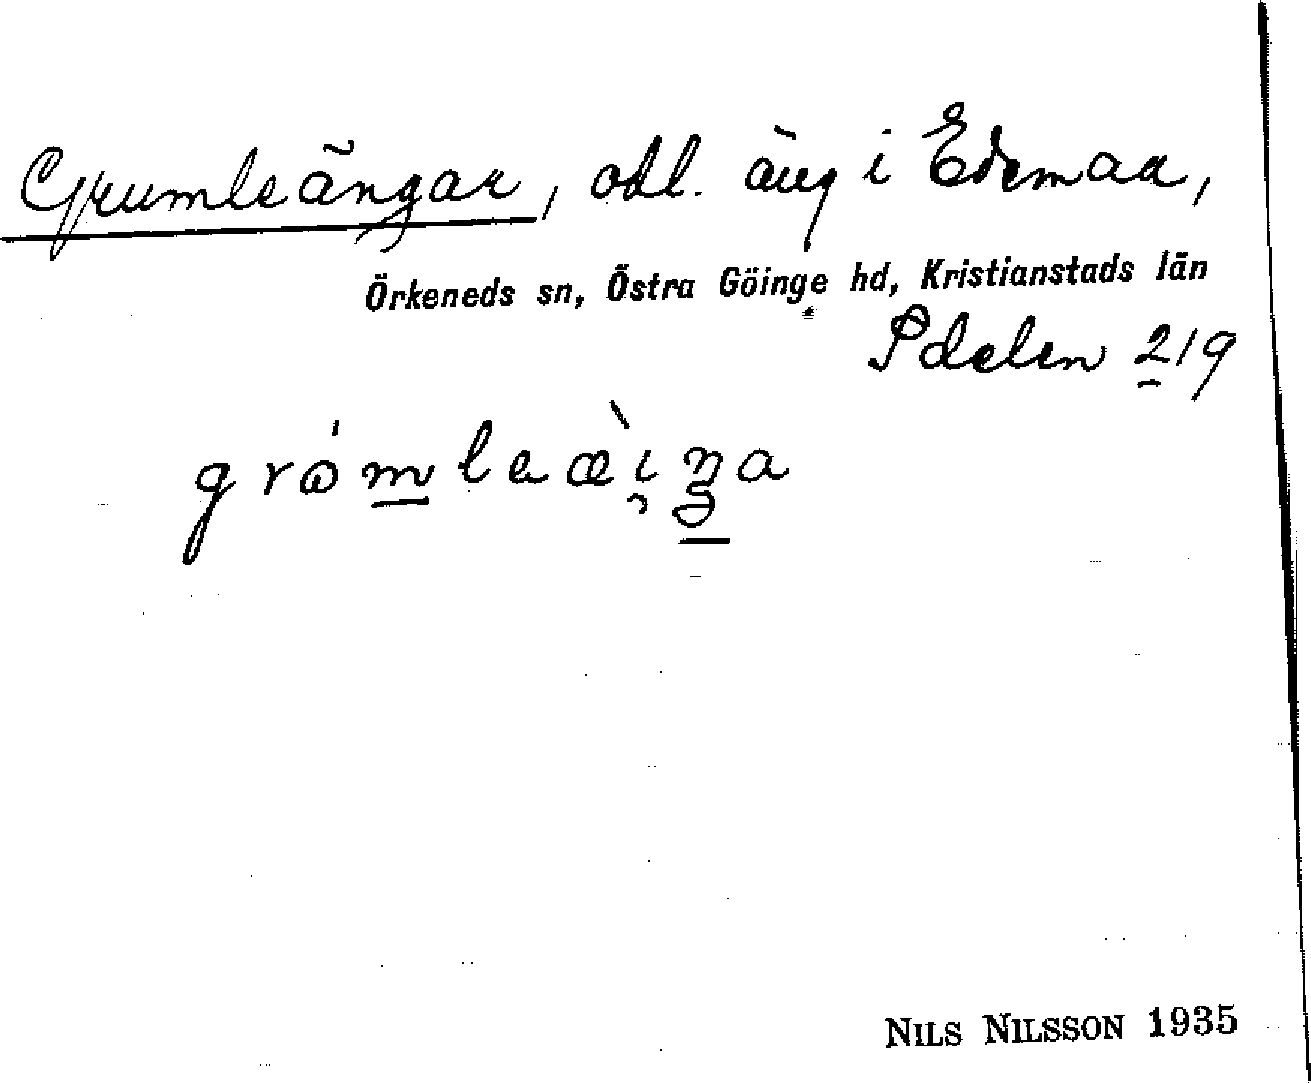 Grumleängar, odl. äng i Edema,
Örkeneds sn, Östra Göinge hd, Kristianstads län
219
NILS NILSSON 1935